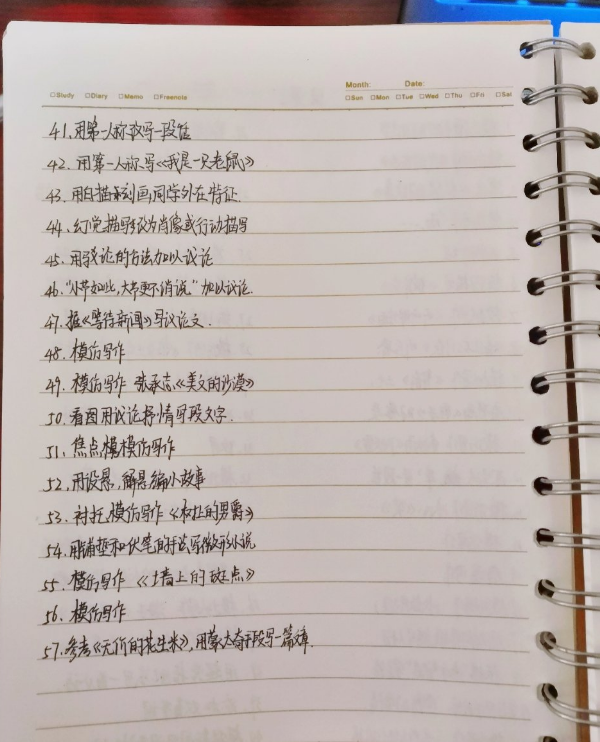 Month: Date:
□Study □Diary □Memo □Freenote □Sun □Mon □Tue □Wed □Thu □Fri □Sat
41、用第一人称改写一段话
42、用第一人称、写《我是一只老鼠》
43、用白描来刻画同学外在特征.
44、幻觉描写改为肖像或行动描写
45、用驳论的方法加以议论
46、"小节如此,大节更不消说"加以议论.
47、据《等待新闻》写议论文.
48、模仿写作
49、模仿写作 张承志《美文的沙漠》
50、看图用议论抒情写段文字.
51、焦点模仿写作
52、用设悬,解悬编小故事
53、衬托,模仿写作《树上的男爵》
54、用铺垫和伏笔的手法写微形小说
55、模仿写作 《墙上的斑点》
56、模仿写作
57、参考《无价的花生米》,用蒙太奇手段写一篇文章.